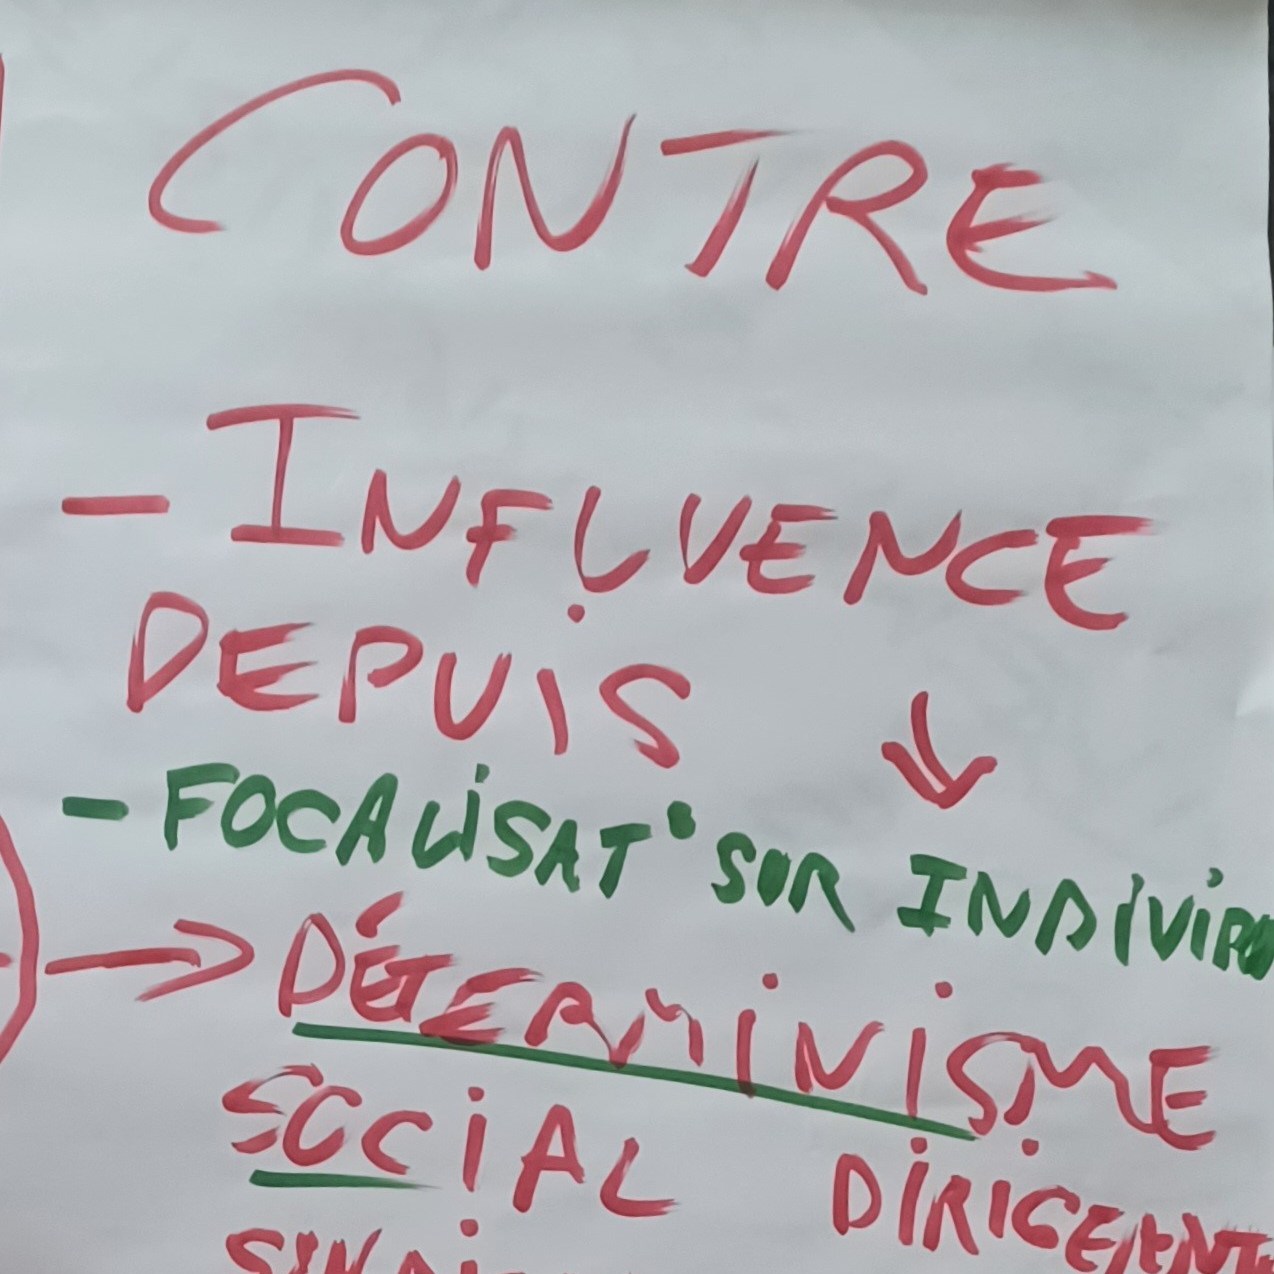 CONTRE
- INFLUENCE
DEPUIS ↓
- FOCALISAT° SUR INDIVIDU
→ DÉTERMINISME
SOCIAL
DIRIGEANT